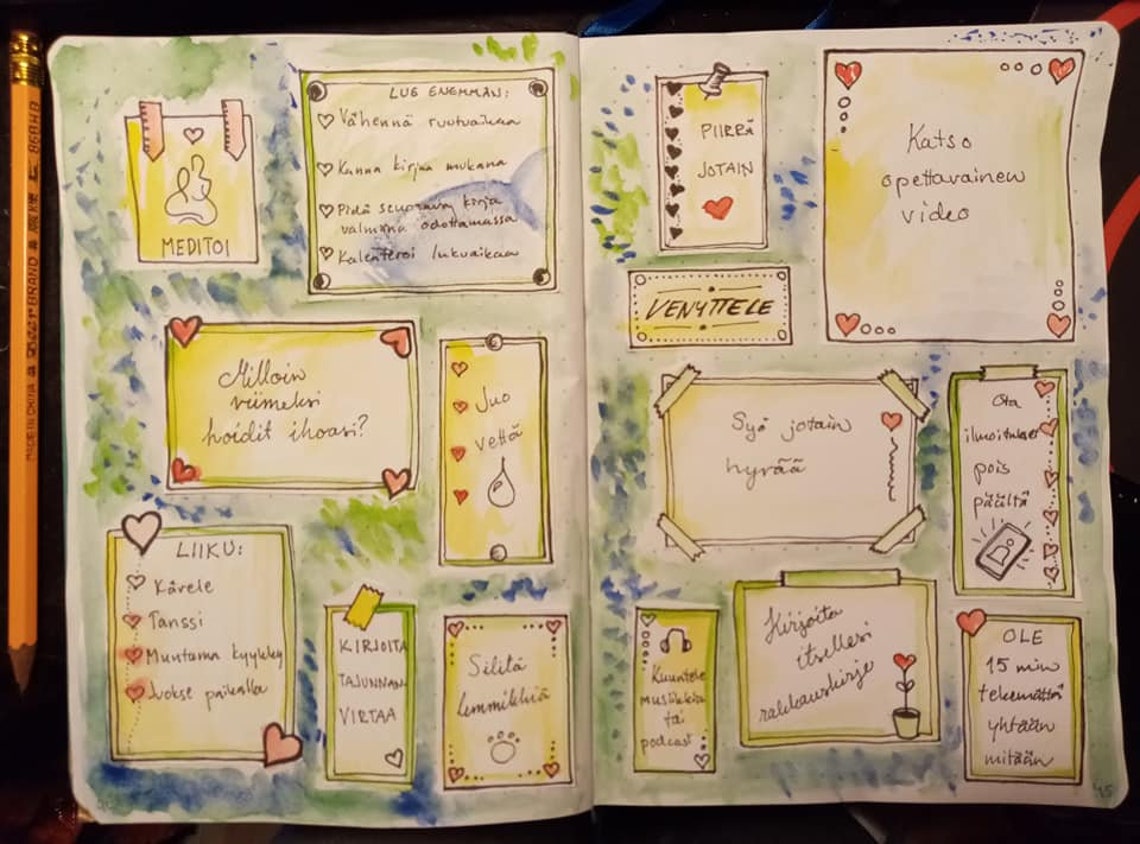 MEDITOI
LUE ENEMMÄN:
Vähennä ruutuaikaa
Kanna kirjaa mukana
Pidä seuraava kirja
valmiina odottamassa
Kalenteroi lukuaikaa
Milloin
viimeksi
hoidit ihoasi?
Juo
vettä
LIIKU:
Kävele
Tanssi
Muutama kyykky
Juokse paikalla
KIRJOITA
TAJUNNAN
VIRTAA
Silitä
lemmikkiä
PIIRRÄ
JOTAIN
Katso
opettavainen
video
VENYTTELE
Syö jotain
hyvää
Ota
ilmoitukset
pois
päältä
Kuuntele
musiikkia
tai
podcast
Kirjoita
itsellesi
rakkauskirje
OLE
15 min
tekemättä
yhtään
mitään
MADE IN CHINA BRAND 8